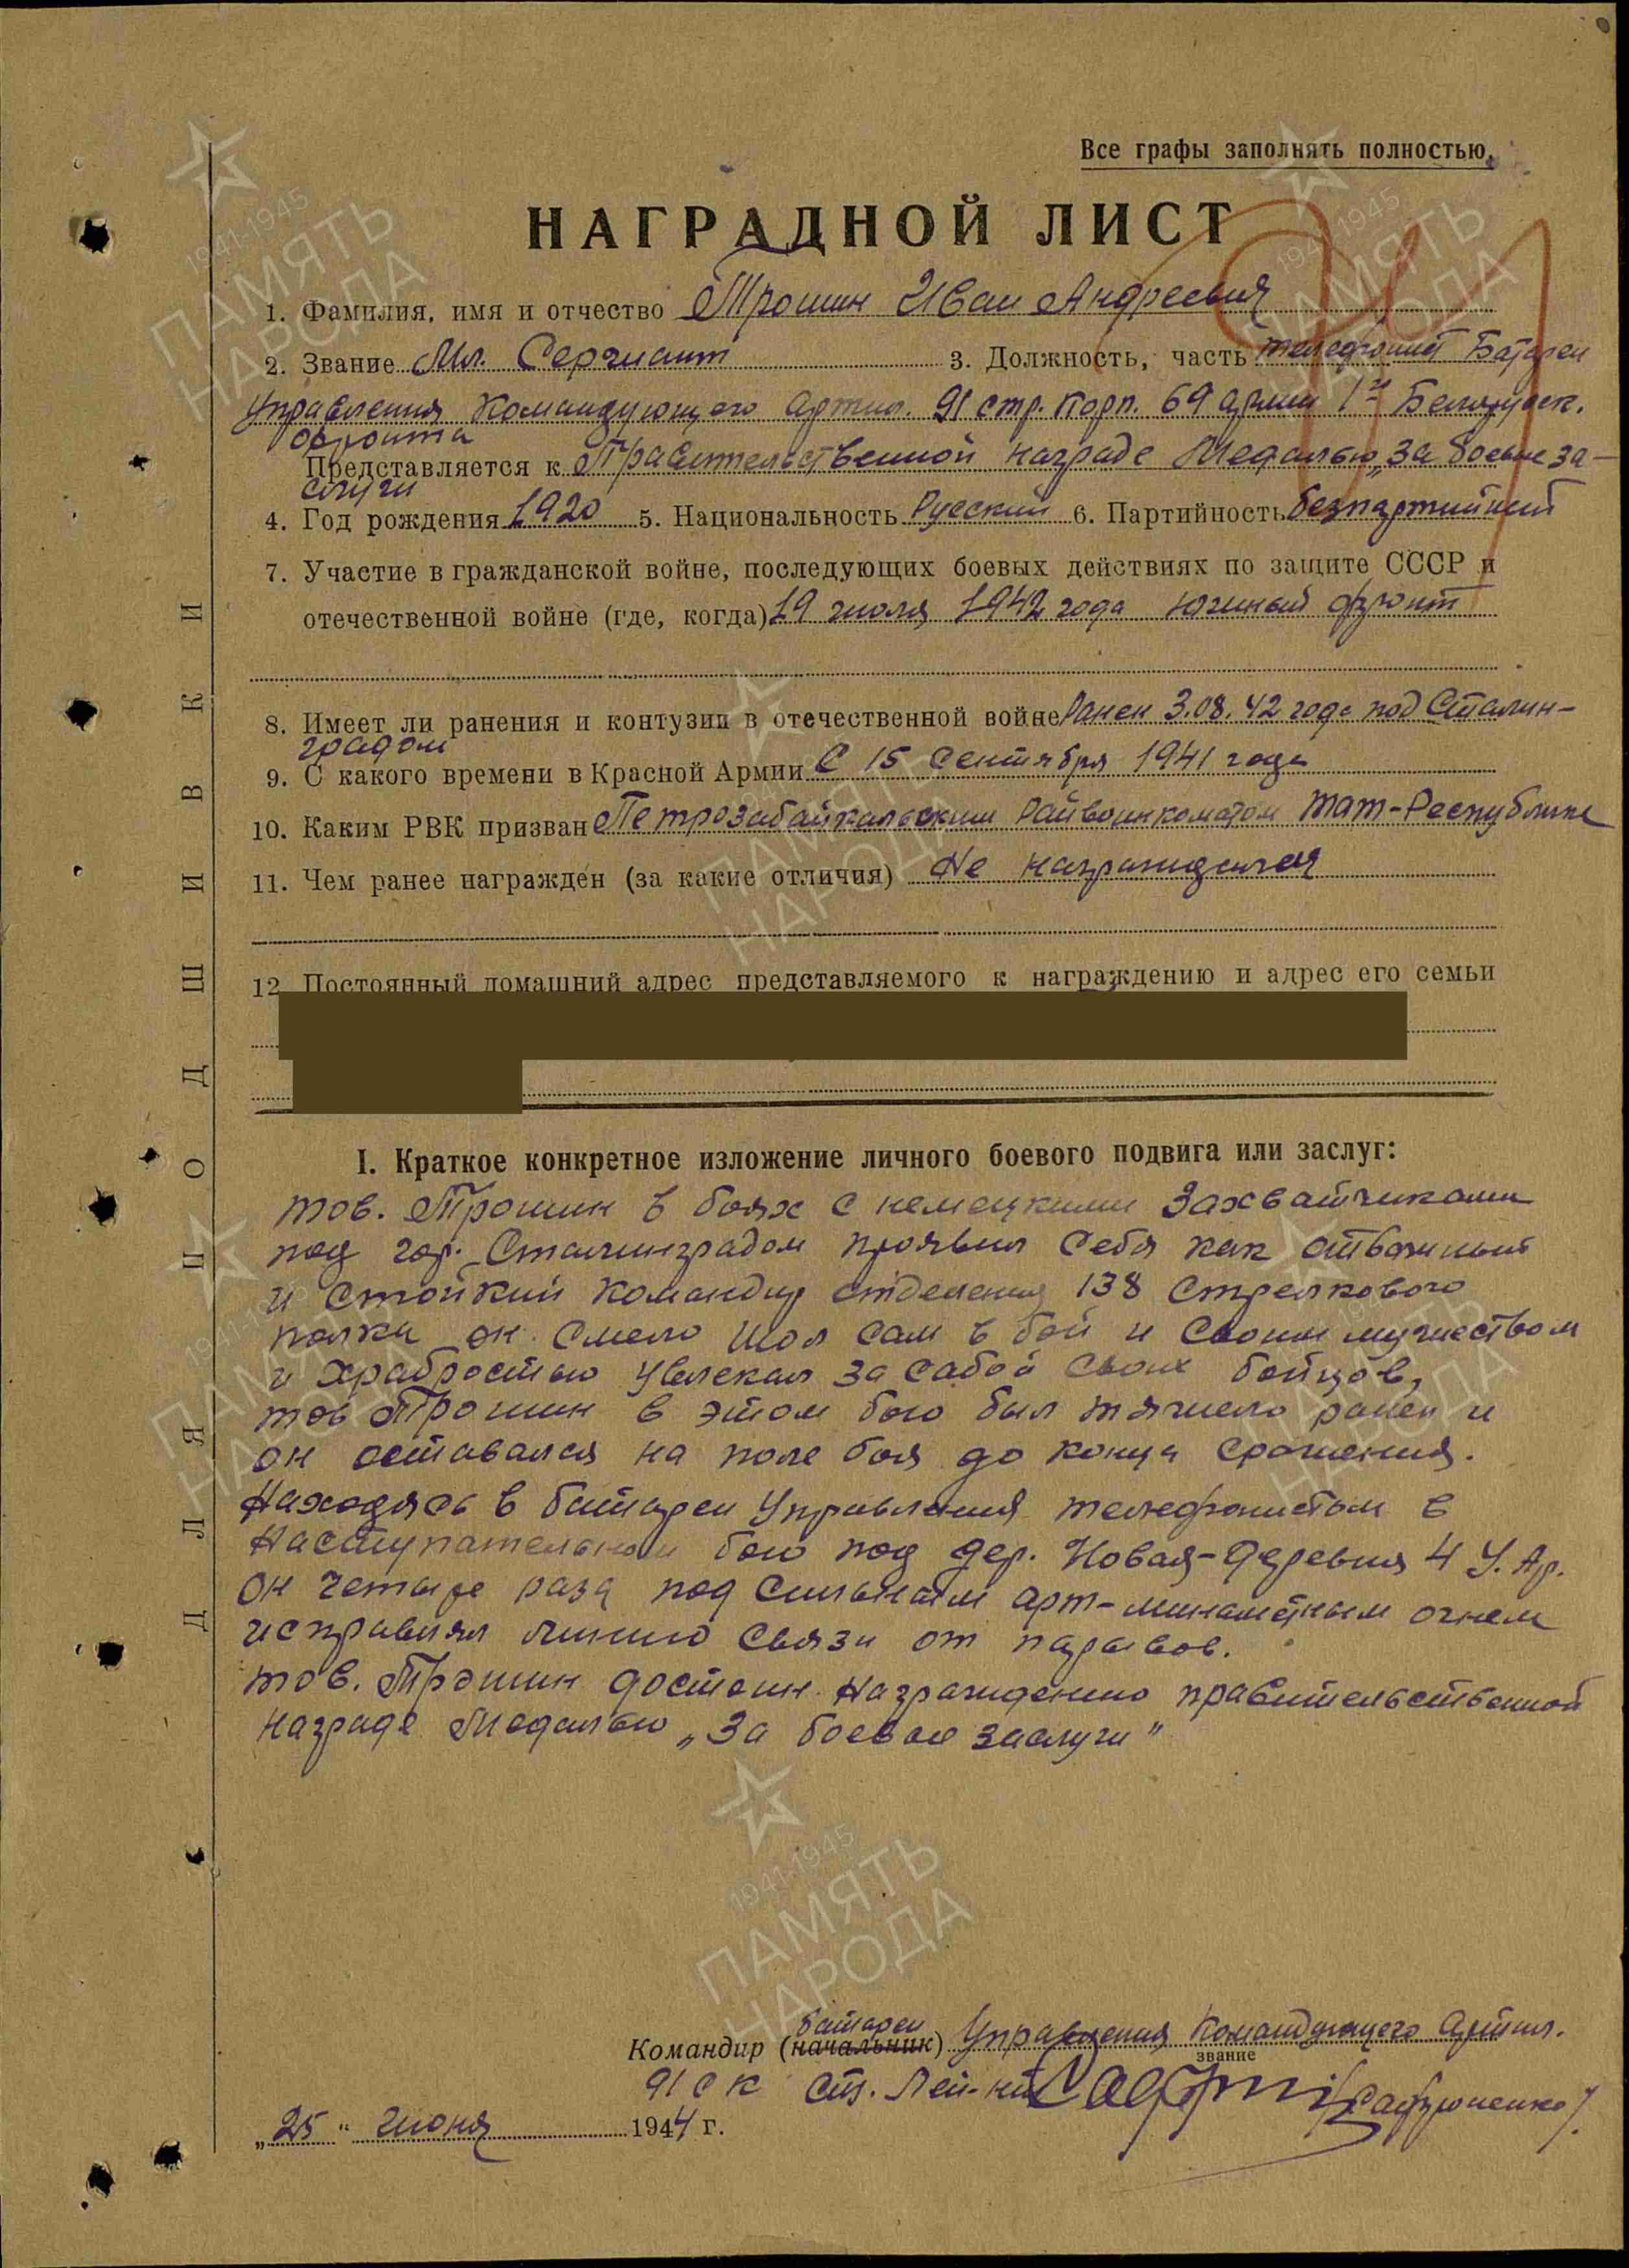 Все графы заполнять полностью.
НАГРАДНОЙ ЛИСТ
1. Фамилия, имя и отчество Трошин Иван Андреевич
2. Звание Мл. Сержант 3. Должность, часть телефонист Батареи
Управления Командующего Артил. 91 стр. Корп. 69 армии 1го Белорусск.
фронта
Представляется к Правительственной награде Медалью „За боевые за-
слуги
4. Год рождения 1920 5. Национальность Русский 6. Партийность безпартийный
7. Участие в гражданской войне, последующих боевых действиях по защите СССР и
отечественной войне (где, когда) 19 июля 1942 года Южный фронт
8. Имеет ли ранения и контузии в отечественной войне Ранен 3.08.42 года под Сталин-
градом
9. С какого времени в Красной Армии С 15 Сентября 1941 года
10. Каким РВК призван Петрозабайкальским Райвоинкоматом Тат-Республике
11. Чем ранее награжден (за какие отличия) Не награждался
12 Постоянный домашний адрес представляемого к награждению и адрес его семьи
I. Краткое конкретное изложение личного боевого подвига или заслуг:
тов. Трошин в боях с немецкими Захватчиками
под гор. Сталинградом проявил Себя как отважный
и Стойкий Командир отделения 138 Стрелкового
полка он. Смело Шол Сам в бой и Своим мужеством
и Храбростью увлекал за сабой Своих бойцов,
тов Трошин в этом бою был тяжело ранен и
он оставался на поле боя до конца Сражения.
Находясь в батареи Управления телефонистом в
Наступательном бою под дер. Новая-Деревня 4 У. Ар.
Он четыре раза под Сильным арт-минометным огнем
исправлял линию Связи от парывов.
тов. Трошин достоин Награждению правительственной
Награде Медалью „За боевые заслуги"
батареи
Командир (начальник) Управления Командующего Артил.
звание
91 С К Ст. Лей-нт /Сафроненко/
„25" июня 1944 г.
ДЛЯ ПОДШИВКИ
1941-1945
ПАМЯТЬ
НАРОДА